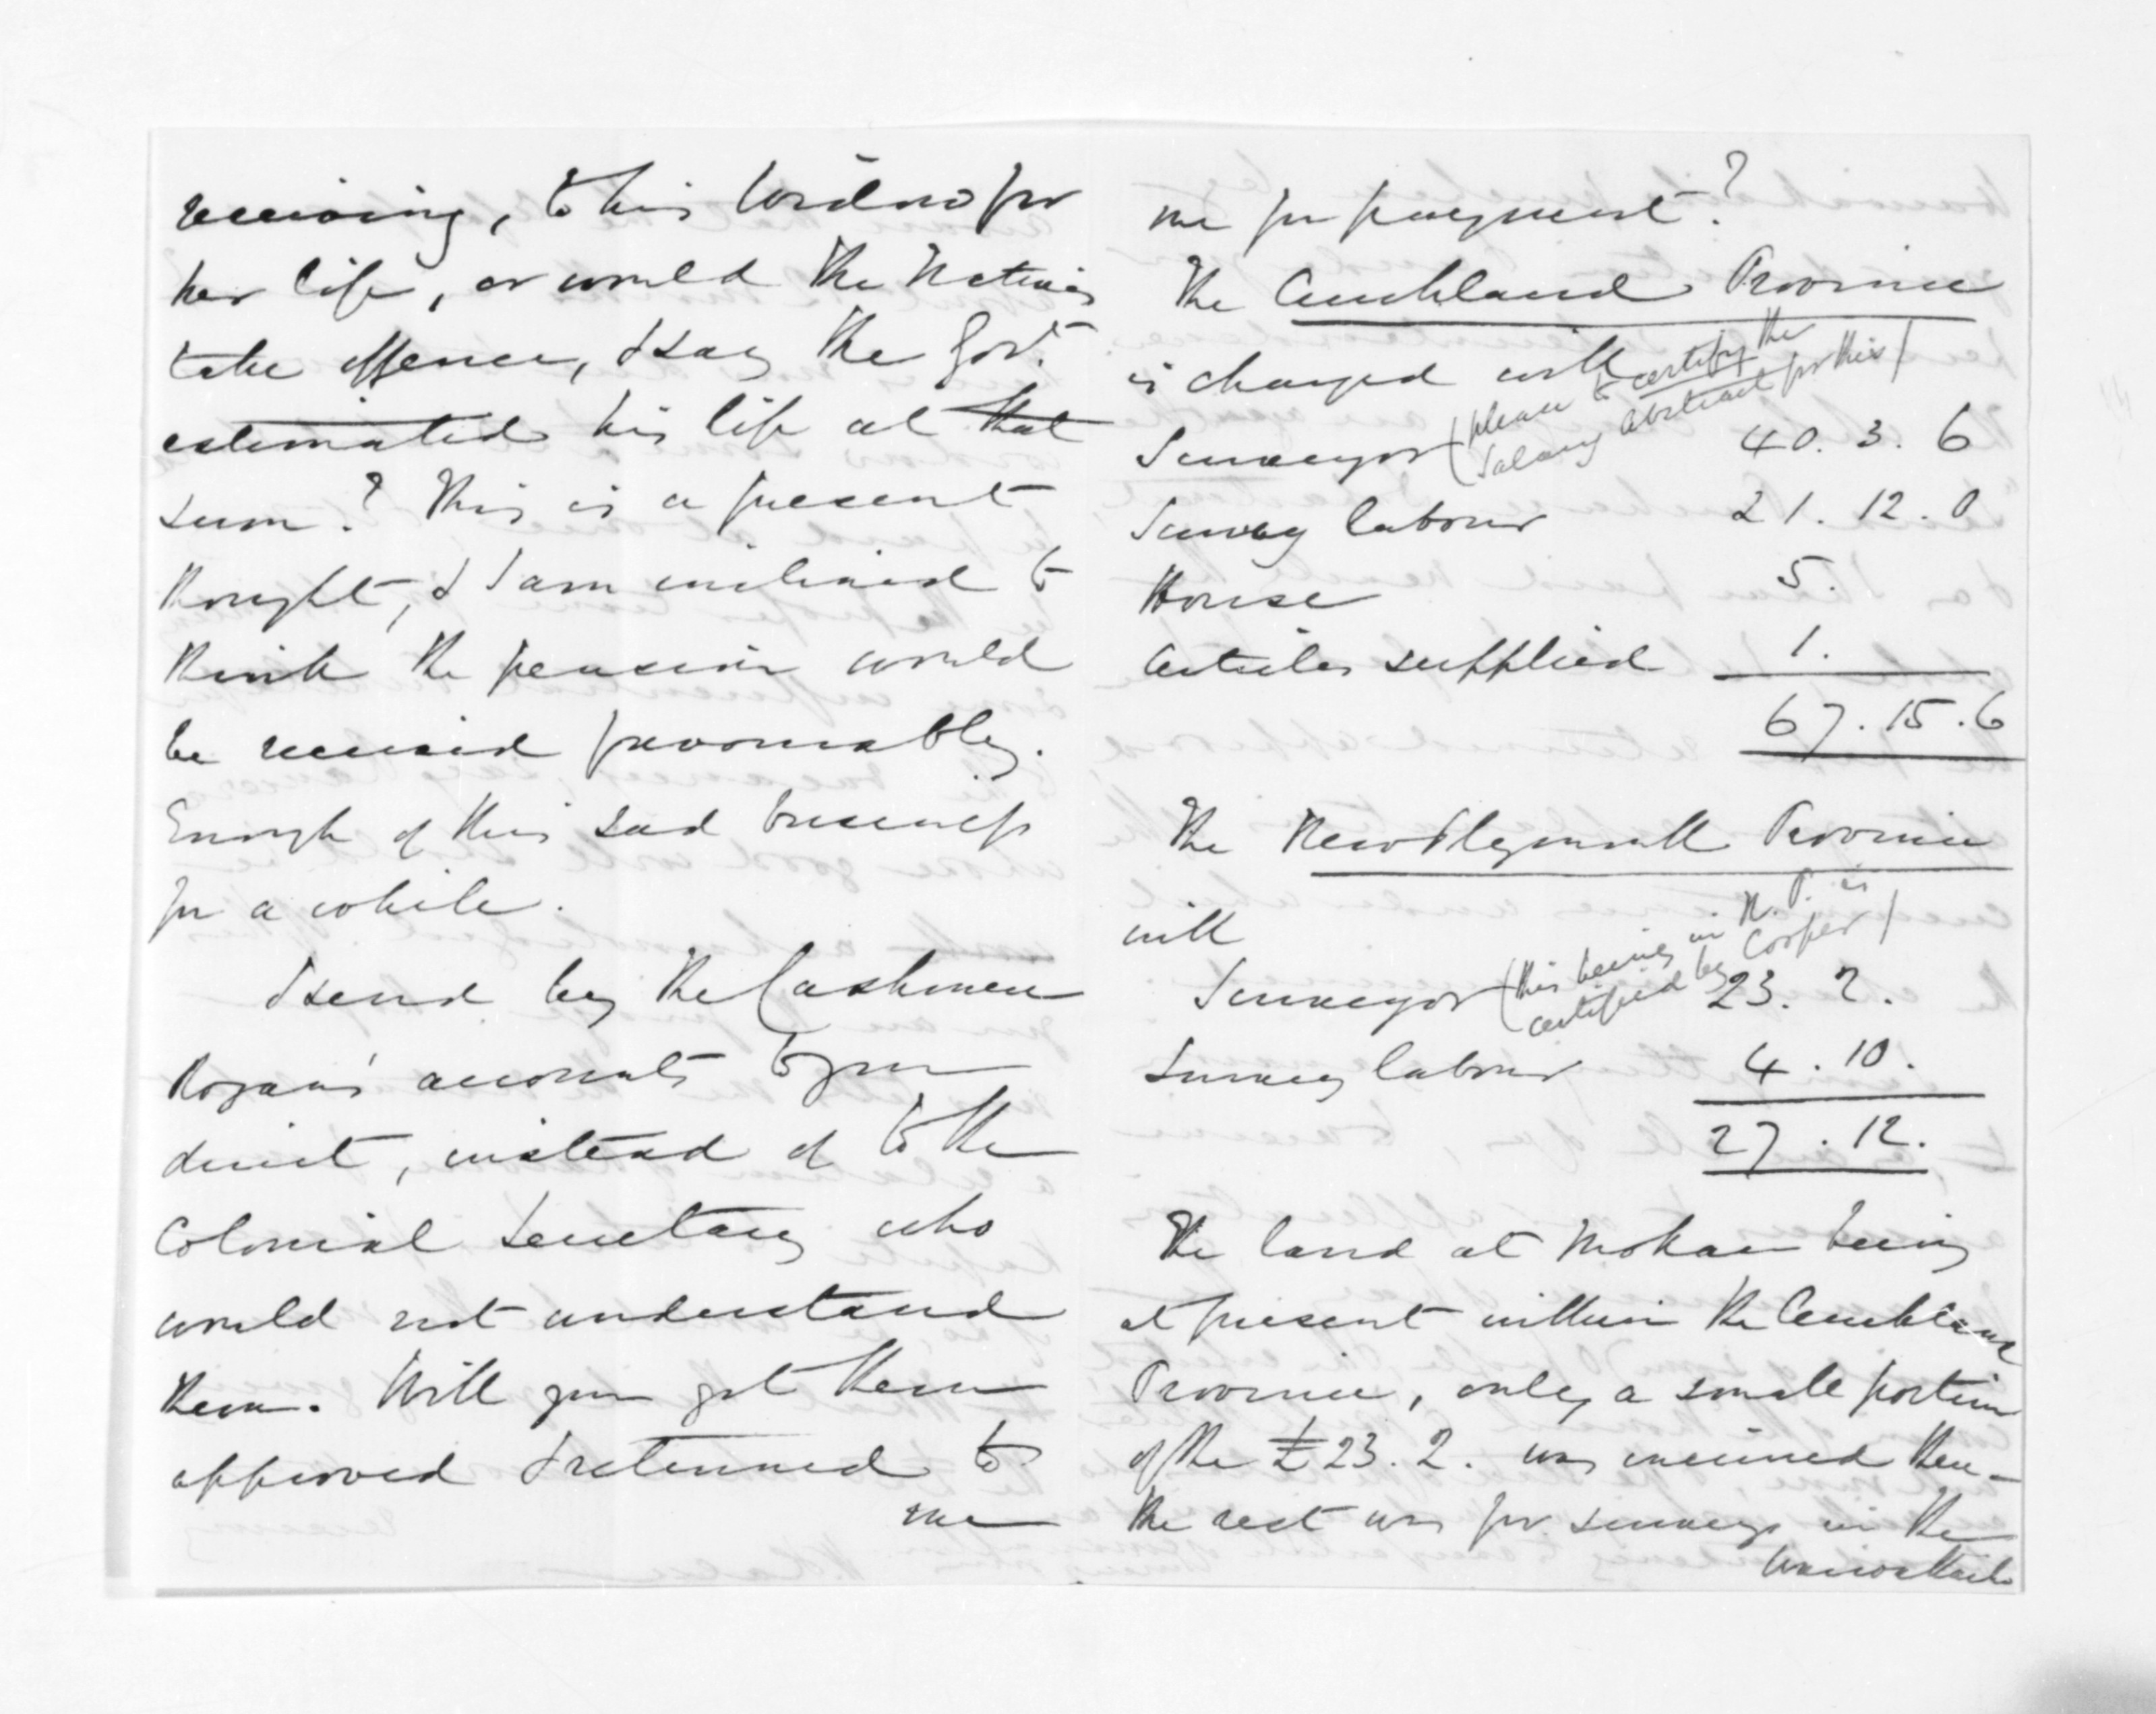 receiving, to his widow for
her life, or would the Natives
take offence, & say the Govt.
estimated his life at that
sum? This is a present
thought, & I am inclined to
think the pension would
be received favourably.
Enough of this sad business
for a while.
I send by the Cashmere
Rogan's accounts to you
direct, instead of to the
Colonial Secretary who
would not understand
them. Will you get them
approved & returned to
me
me for payment?
The Auckland Province
is charged with
(please to certify the
Salary abstract for this)
Surveyor 40. 3. 6
Survey labour 21. 12. 0
House 5.
Articles supplied 1.
67. 15. 6
The New Plymouth Province
with
(this being in N. P. is
certified by Cooper)
Surveyor 23. 2.
Survey labour 4. 10.
27. 12.
The land at Mokau being
at present within the Auckland
Province, only a small portion
of the £23. 2. was incurred there -
the rest was for surveys in the